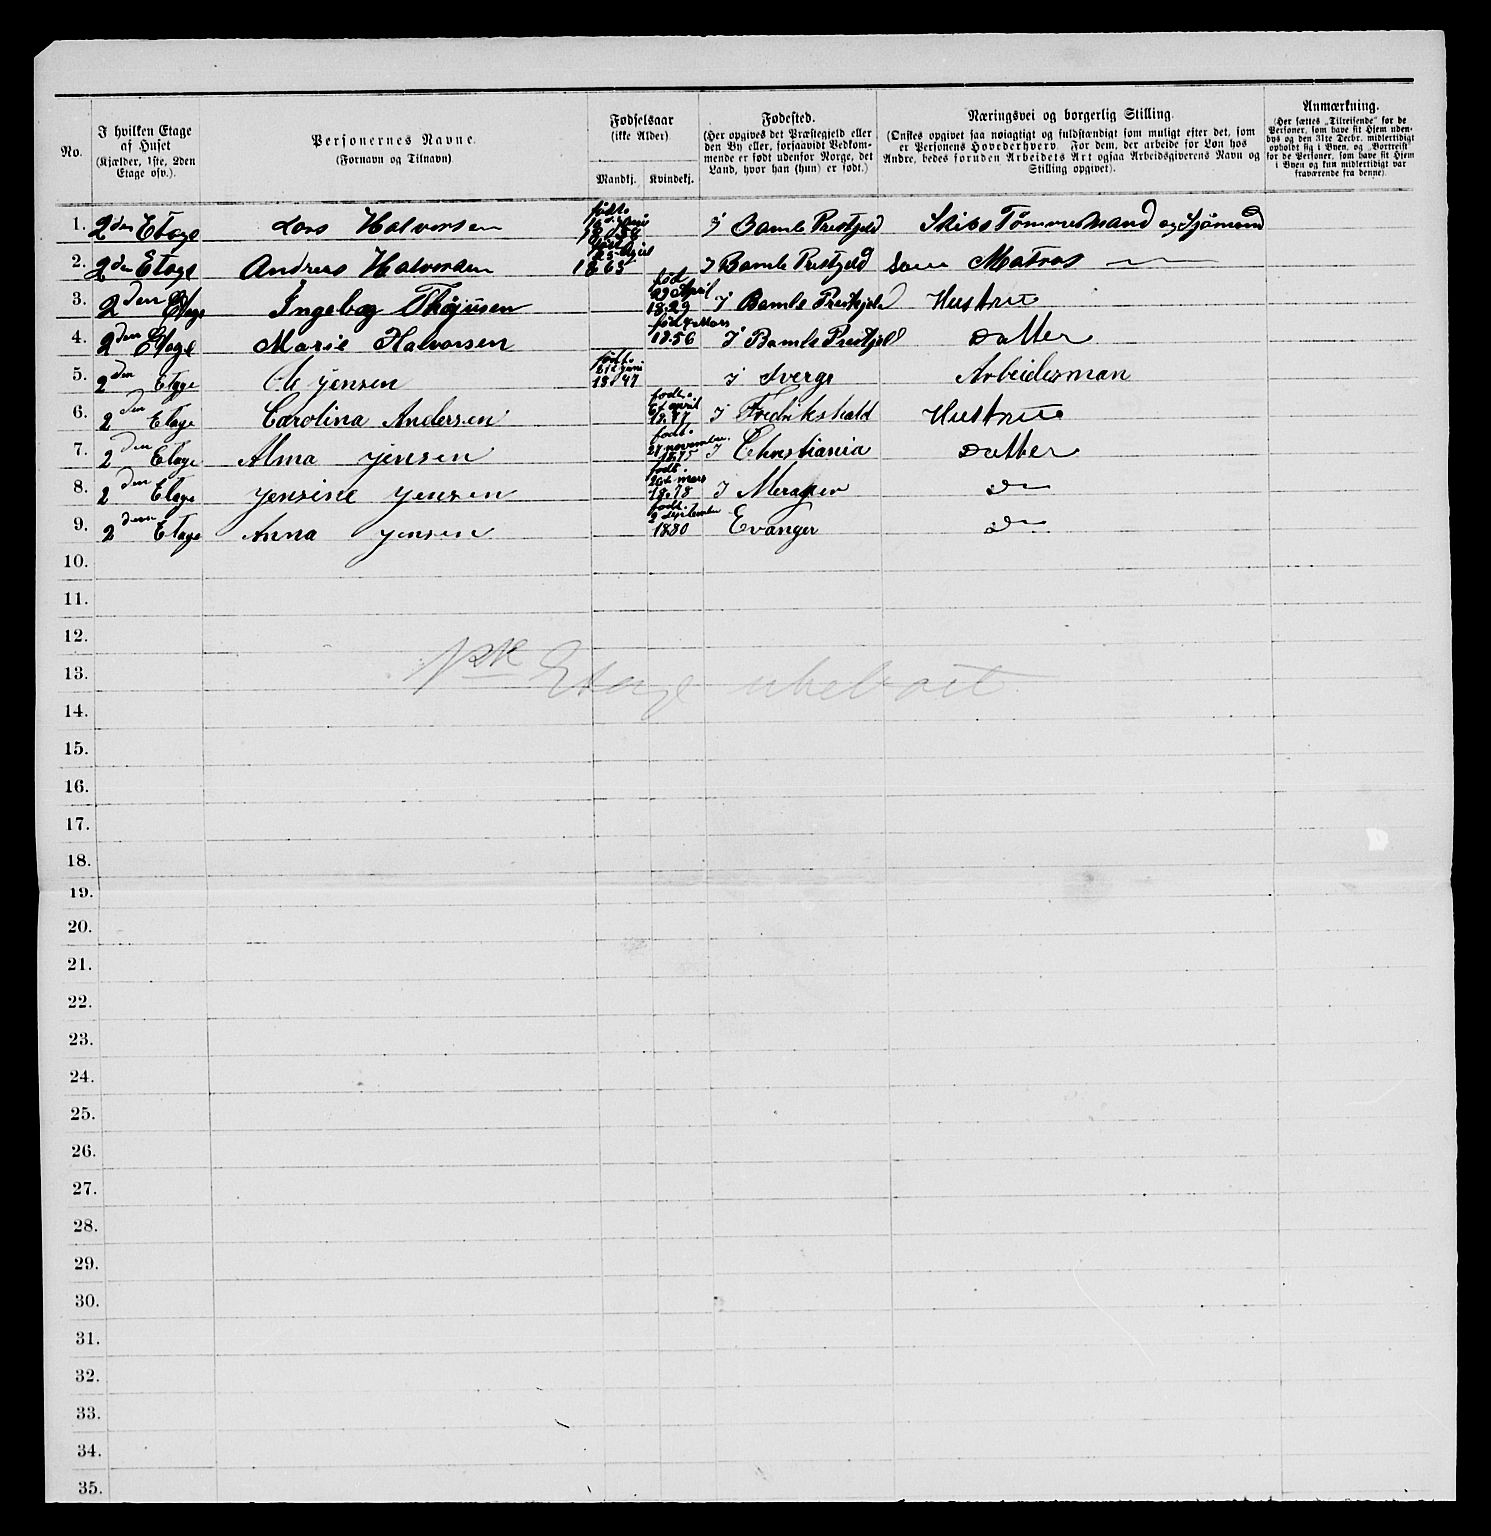 No.
I hvilken Etage af Huset (Kjælder, 1ste, 2den Etage osv.).
Personernes Navne. (Fornavn og Tilnavn)
Fødselsaar (ikke Alder).
Mandkj. Kvindekj.
Fødested. (Her opgives det Præstegjeld eller den By eller, forsaavidt Vedkommende er født udenfor Norge, det Land, hvor han (hun) er født.)
Næringsvei og borgerlig Stilling. (Ønskes opgivet saa nøiagtigt og fuldstændigt som muligt efter det, som er Personens Hovederhverv. For dem, der arbeide for Løn hos Andre, bedes foruden Arbeidets Art ogsaa Arbeidsgiverens Navn og Stilling opgivet).
Anmærkning. (Her sættes „Tilreisende" for de Personer, som have sit Hjem udenbys og den 31te Decbr. midlertidigt opholdt sig i Byen, og „Bortreist" for de Personer, som have sit Hjem i Byen og kun midlertidigt var fraværende fra denne).
1. 2den Etage Lars Halvorsen født. I Bamle Prestjeld Skibs Tømmermand og Sjømand
2. 2den Etage Andreas Halvorsen 1863 I Bamle Prestjeld som Matros
3. 2den Etage Ingebog født 29 April 1829 I Bamle Prestjeld Hustrue
4. 2den Etage Marie Halvorsen Mars 1856 I Bamle Prestjeld Datter
5. 2den Etage Ole Jensen født. 1847 I Sverge Arbeidesman
6. 2den Etage Carolina Andersen født. april I Fredrikshald Hustrue
7. 2den Etage Alma Jensen født. november 1875 I Christiania Datter
8. 2den Etage Jensine Jensen født. mars 1878 I Meraker do
9. 2den Etage Anna Jensen født. 2 September 1880 Evanger do
10.
11.
12.
13. 1ste Etage ubeboet
14.
15.
16.
17.
18.
19.
20.
21.
22.
23.
24.
25.
26.
27.
28.
29.
30.
31.
32.
33.
34.
35.